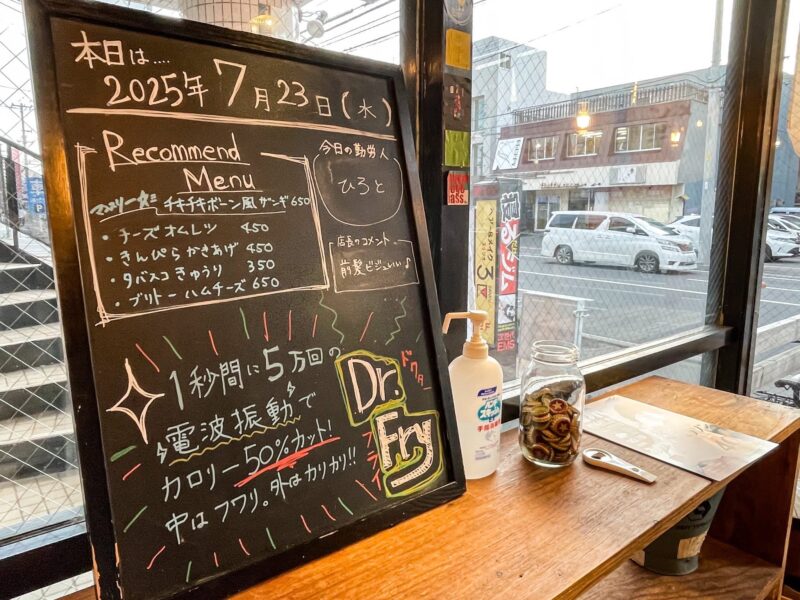 本日は....
2025年 7月23日(水)
Recommend
Menu
チキチキボーン風ザンギ 650
・チーズオムレツ 450
・きんぴらかきあげ 450
・タバスコきゅうり 350
・ブリトーハムチーズ 650
今日の勤労人
ひろと
店長のコメント。
前髪ビジュいい♪
1秒間に5万回の
電波振動で
カロリー50%カット!
中はフワリ。外はカリカリ!!
ドクター
Dr.
Fry
フライ
EMS